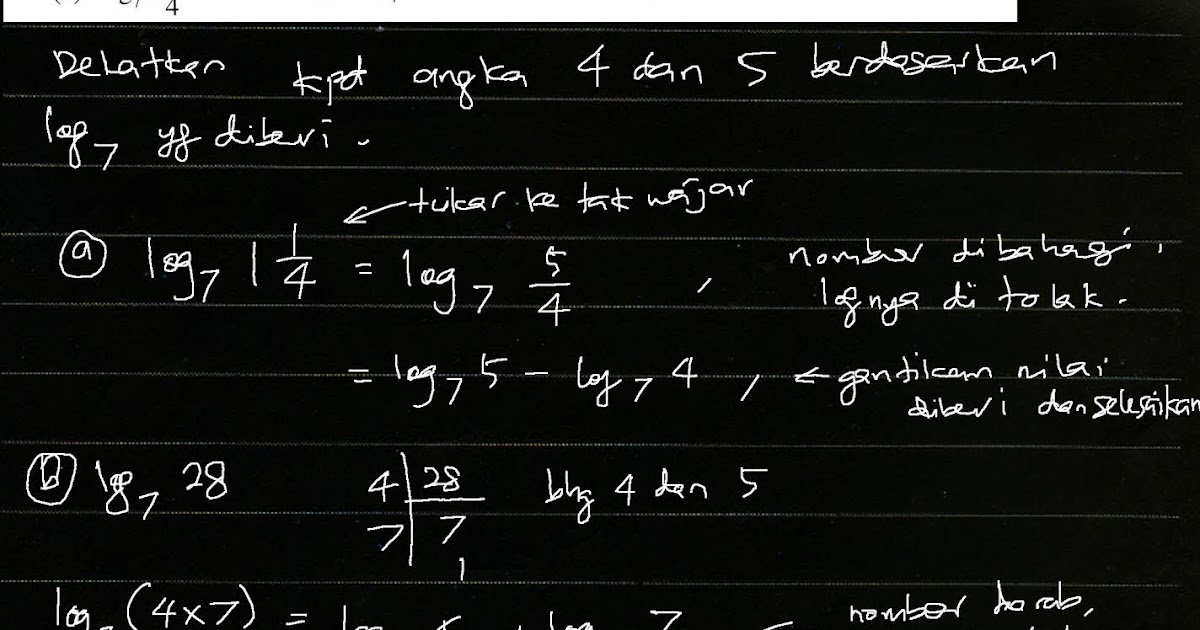 4
Dekatkan kpd angka 4 dan 5 berdasarkan
log₇ yg diberi.
← tukar ke tak wajar
(a) log₇ 1 1/4 = log₇ 5/4 , nombor dibahagi,
lognya di tolak.
= log₇ 5 - log₇ 4 , ← gantikan nilai
diberi dan selesaikan
(b) log₇ 28 4 | 28 bhg 4 dan 5
7 | 7
1
log (4×7) = log + log 7 nombor darab,